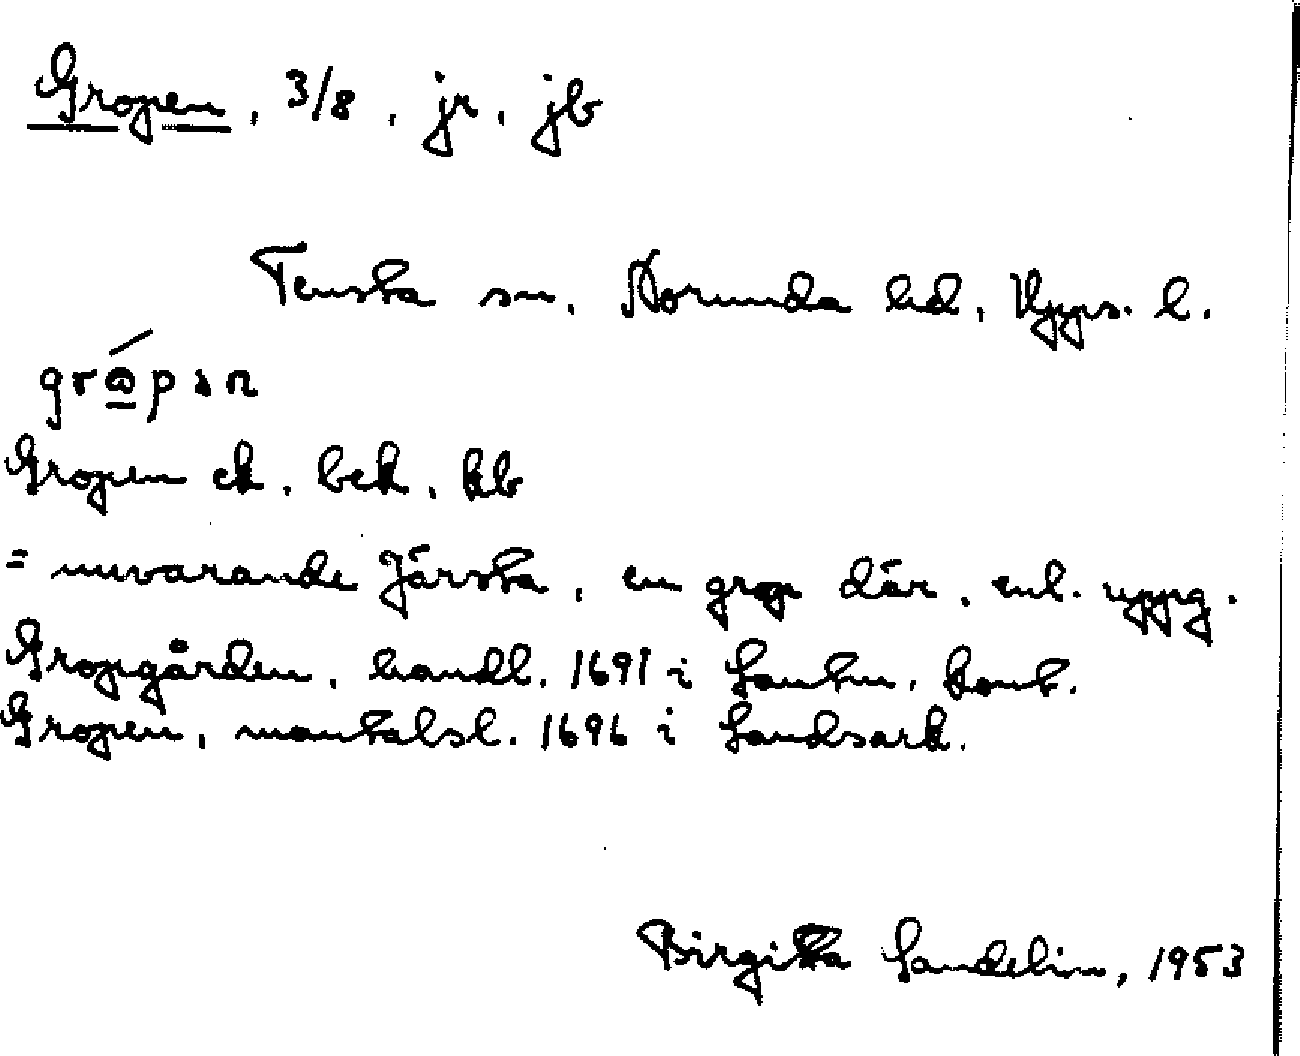 Gropen, 3/8, jr, jb
Tensta sn, Norunda hd, Upps. l.
Gropen ek. bek, kb
= nuvarande Järsta, en grop där, enl. uppg.
Gropgården, handl. 1691 i Lantm. kont.
Gropen, mantalsl. 1696 i Landsark.
Birgitta Sandelin, 1953